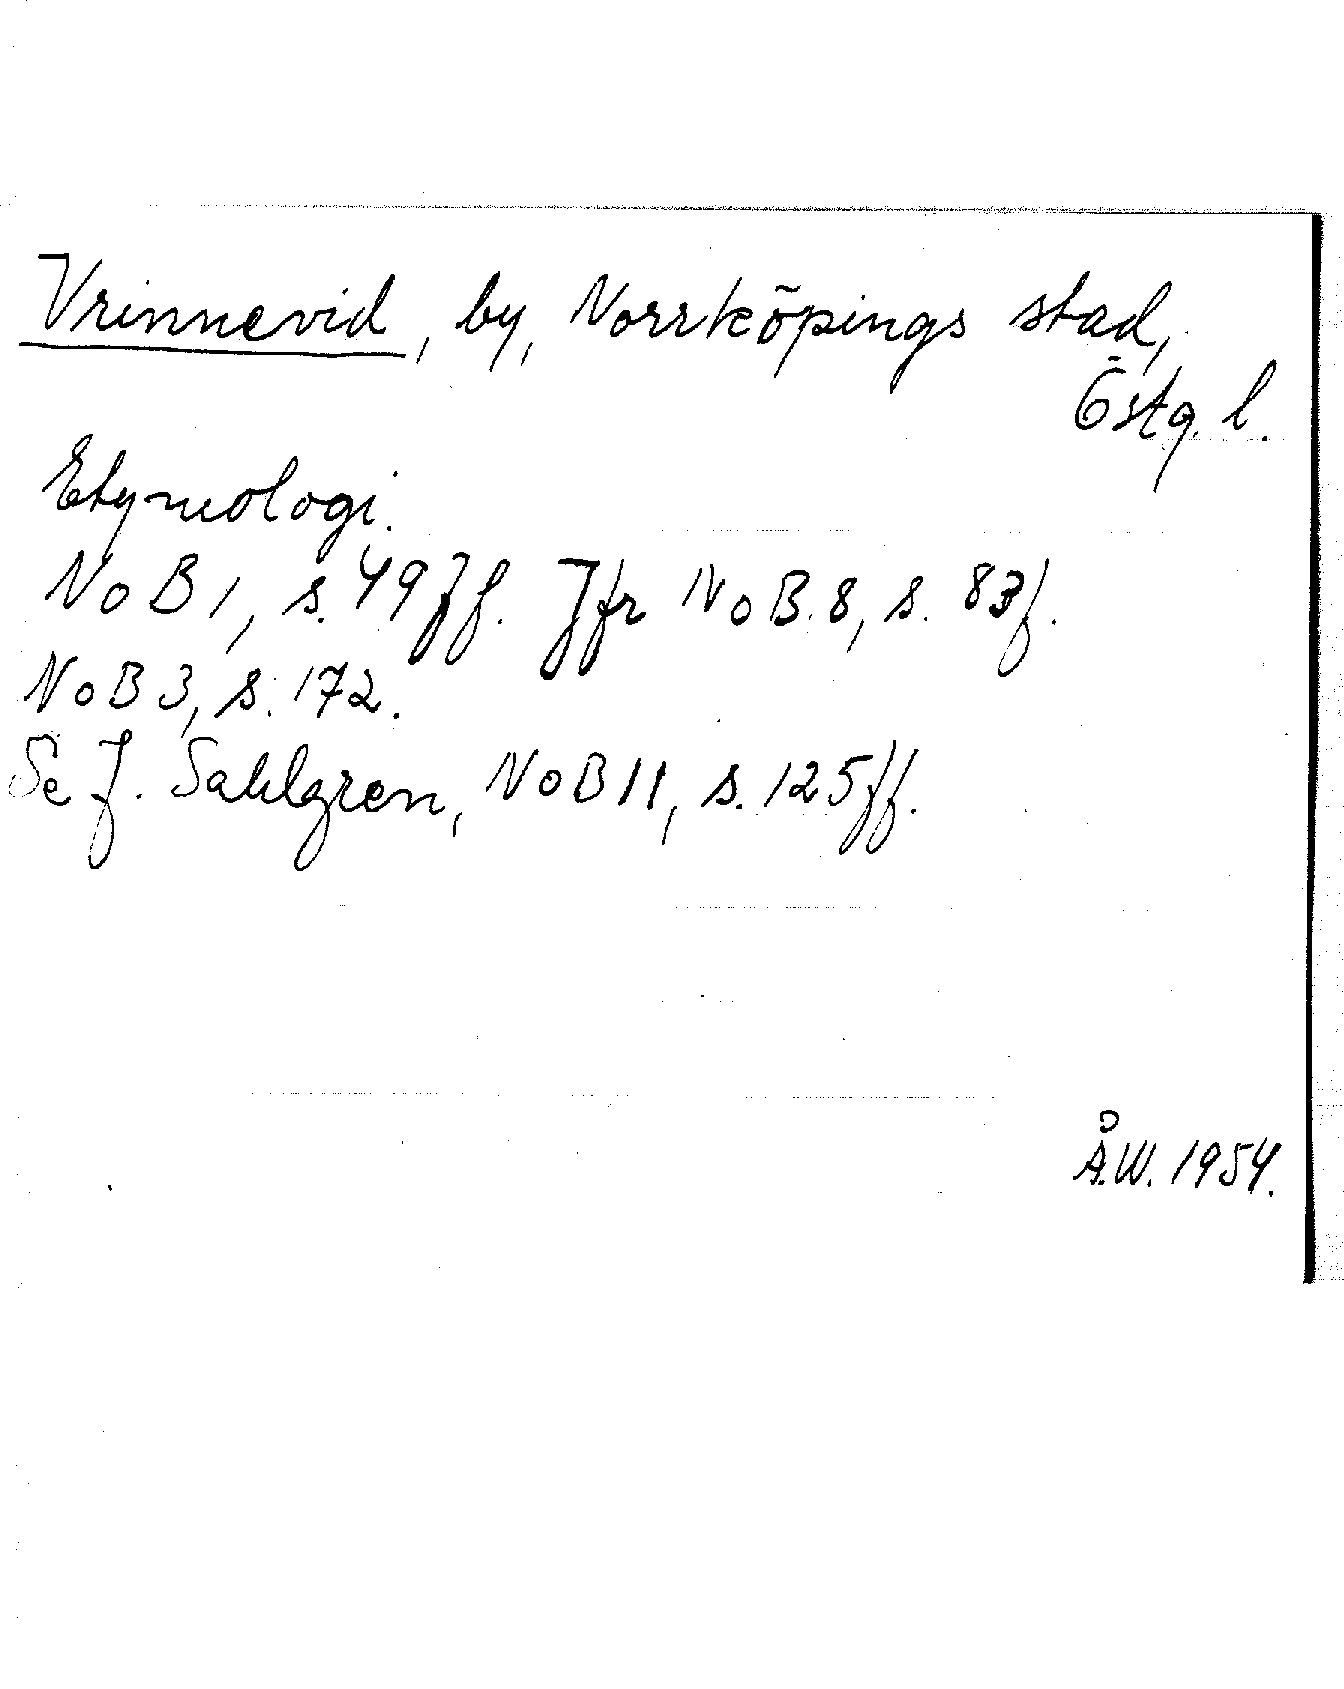 Vrinnevid, by, Norrköpings stad,
Östg. l.
Etymologi.
NoB 1, s. 49 ff. Jfr NoB. 8, s. 83 f.
NoB 3, s. 172.
Se J. Sahlgren, NoB 11, s. 125 ff.
Å.W. 1954.